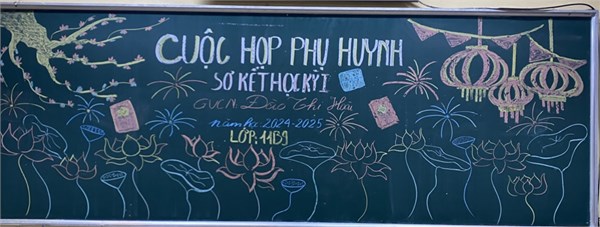 CUỘC HỌP PHỤ HUYNH
SƠ KẾT HỌC KỲ I
GVCN: Đào Thị Hải
Năm học 2024-2025
LỚP: 11B9